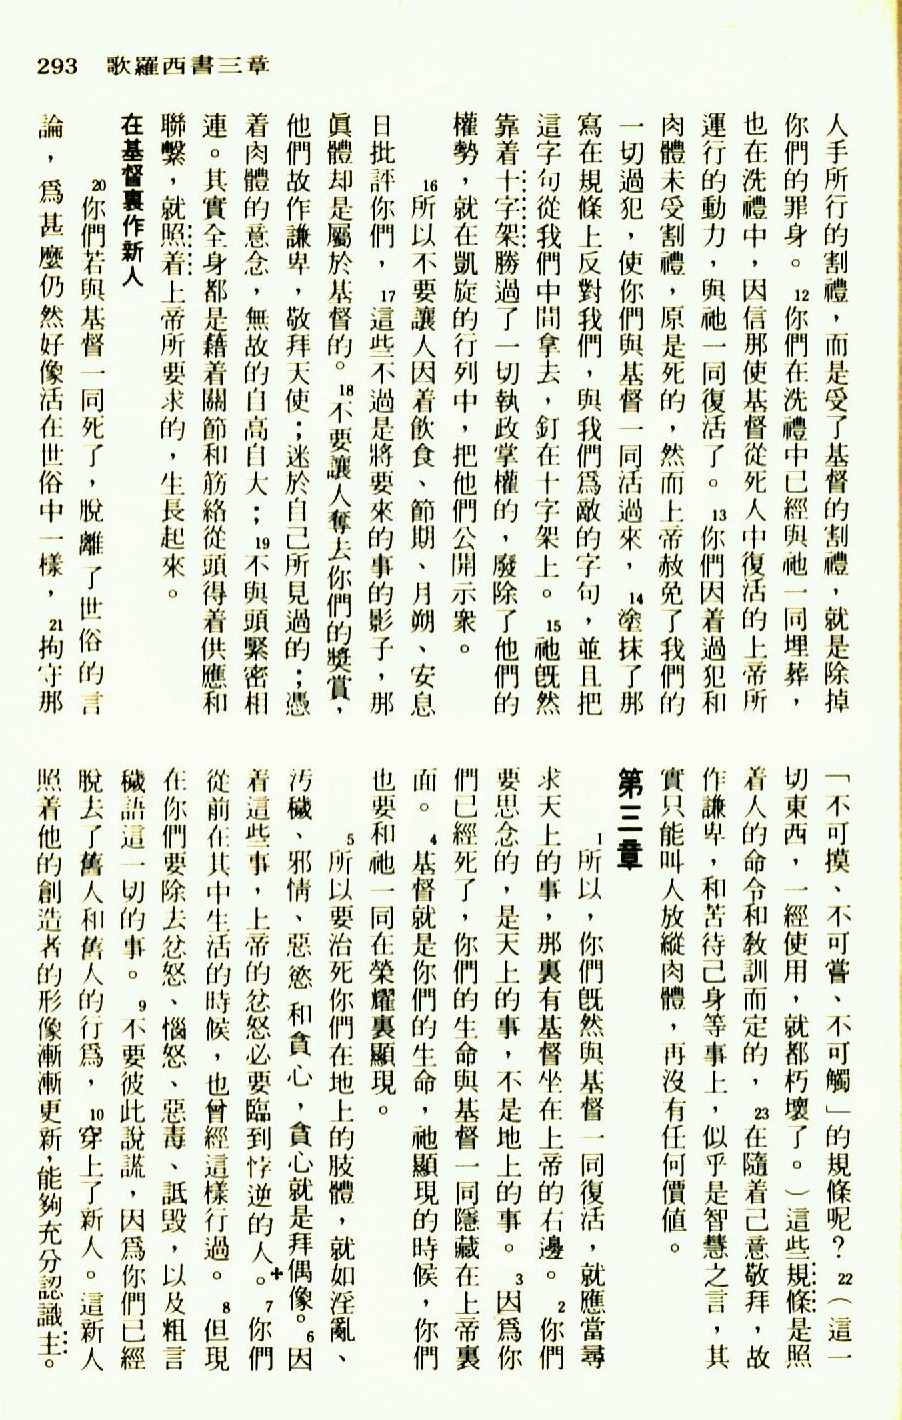 293 歌羅西書三章
人手所行的割禮，而是受了基督的割禮，就是除掉
你們的罪身。12你們在洗禮中已經與祂一同埋葬，
也在洗禮中，因信那使基督從死人中復活的上帝所
運行的動力，與祂一同復活了。13你們因着過犯和
肉體未受割禮，原是死的，然而上帝赦免了我們的
一切過犯，使你們與基督一同活過來，14塗抹了那
寫在規條上反對我們，與我們爲敵的字句，並且把
這字句從我們中間拿去，釘在十字架上。15祂旣然
靠着十字架勝過了一切執政掌權的，廢除了他們的
權勢，就在凱旋的行列中，把他們公開示衆。
16所以不要讓人因着飲食、節期、月朔、安息
日批評你們，17這些不過是將要來的事的影子，那
眞體却是屬於基督的。18不要讓人奪去你們的獎賞，
他們故作謙卑，敬拜天使；迷於自己所見過的；憑
着肉體的意念，無故的自高自大；19不與頭緊密相
連。其實全身都是藉着關節和筋絡從頭得着供應和
聯繫，就照着上帝所要求的，生長起來。
在基督裏作新人
20你們若與基督一同死了，脫離了世俗的言
論，爲甚麼仍然好像活在世俗中一樣，21拘守那
「不可摸、不可嘗、不可觸」的規條呢？22（這一
切東西，一經使用，就都朽壞了。）這些規條是照
着人的命令和敎訓而定的，23在隨着己意敬拜，故
作謙卑，和苦待己身等事上，似乎是智慧之言，其
實只能叫人放縱肉體，再沒有任何價値。
第三章
1所以，你們旣然與基督一同復活，就應當尋
求天上的事，那裏有基督坐在上帝的右邊。2你們
要思念的，是天上的事，不是地上的事。3因爲你
們已經死了，你們的生命與基督一同隱藏在上帝裏
面。4基督就是你們的生命，祂顯現的時候，你們
也要和祂一同在榮耀裏顯現。
5所以要治死你們在地上的肢體，就如淫亂、
汚穢、邪情、惡慾和貪心，貪心就是拜偶像。6因
着這些事，上帝的忿怒必要臨到悖逆的人。✚7你們
從前在其中生活的時候，也曾經這樣行過。8但現
在你們要除去忿怒、惱怒、惡毒、詆毀，以及粗言
穢語這一切的事。9不要彼此說謊，因爲你們已經
脫去了舊人和舊人的行爲，10穿上了新人。這新人
照着他的創造者的形像漸漸更新，能夠充分認識主。